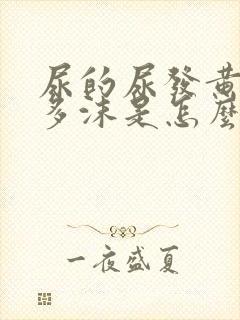 尿的尿發黃
多沫是怎麼
一夜盛夏